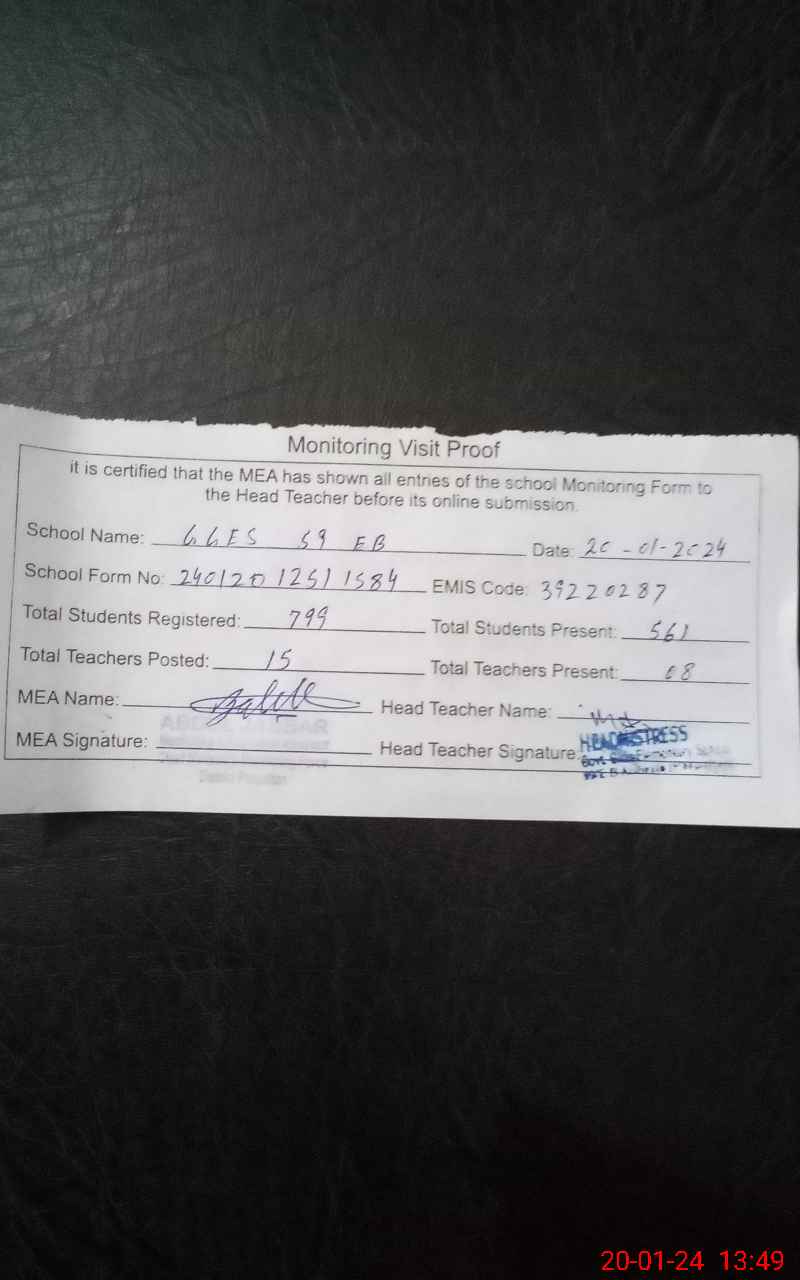 Monitoring Visit Proof
it is certified that the MEA has shown all entries of the school Monitoring Form to
the Head Teacher before its online submission.
School Name: GGES 59 EB Date: 20-01-2024
School Form No: 240120125111584 EMIS Code: 39220287
Total Students Registered: 799 Total Students Present: 561
Total Teachers Posted: 15 Total Teachers Present: 08
MEA Name: Head Teacher Name:
MEA Signature: Head Teacher Signature: HEADMISTRESS
20-01-24 13:49